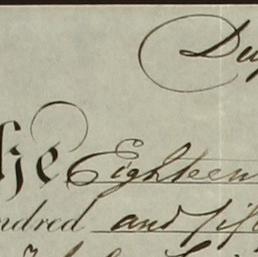 Du
he Eighteen
ndred and fif